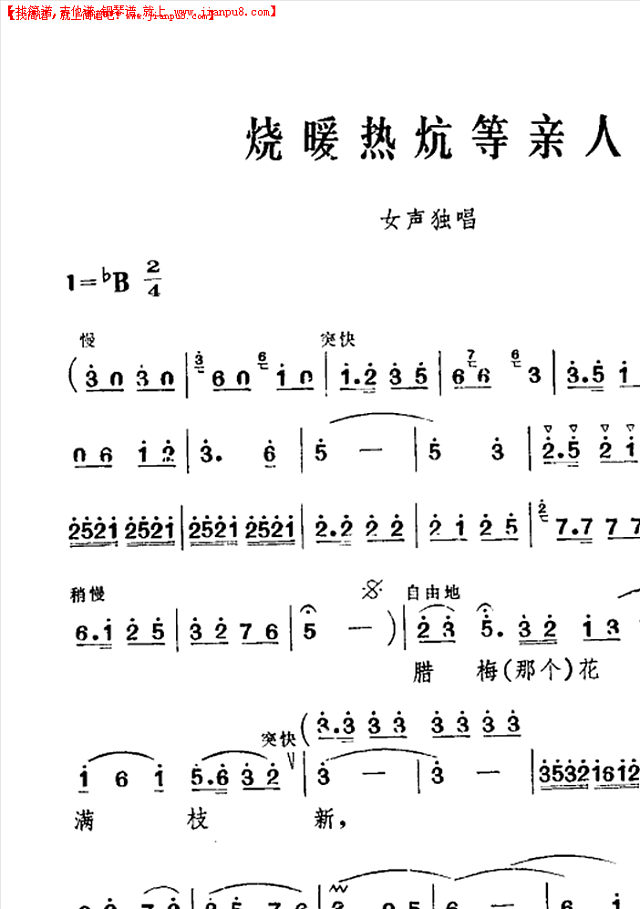 【找简谱,就上简谱吧! www.jianpu8.com】
烧暖热炕等亲人
女声独唱
1=♭B 2/4
慢 突快
(3 0 3 0 | 3 6 0 6 1 0 | 1.2 3 5 | 7 6 6 6 3 | 3.5 1
0 6 1 2 | 3. 6 | 5 — | 5 3 | 2.5 2 1
2521 2521 | 2521 2521 | 2.2 2 2 | 2 1 2 5 | 2 7.7 7 7
稍慢 自由地
6.1 2 5 | 3 2 7 6 | 5 — ) | 2 3 5. 3 2 1 3
腊 梅(那个)花
突快 (3.3 3 3 3 3 3 3
1 6 1 5.6 3 2 | 3 — | 3 — | 35321612
满 枝 新,